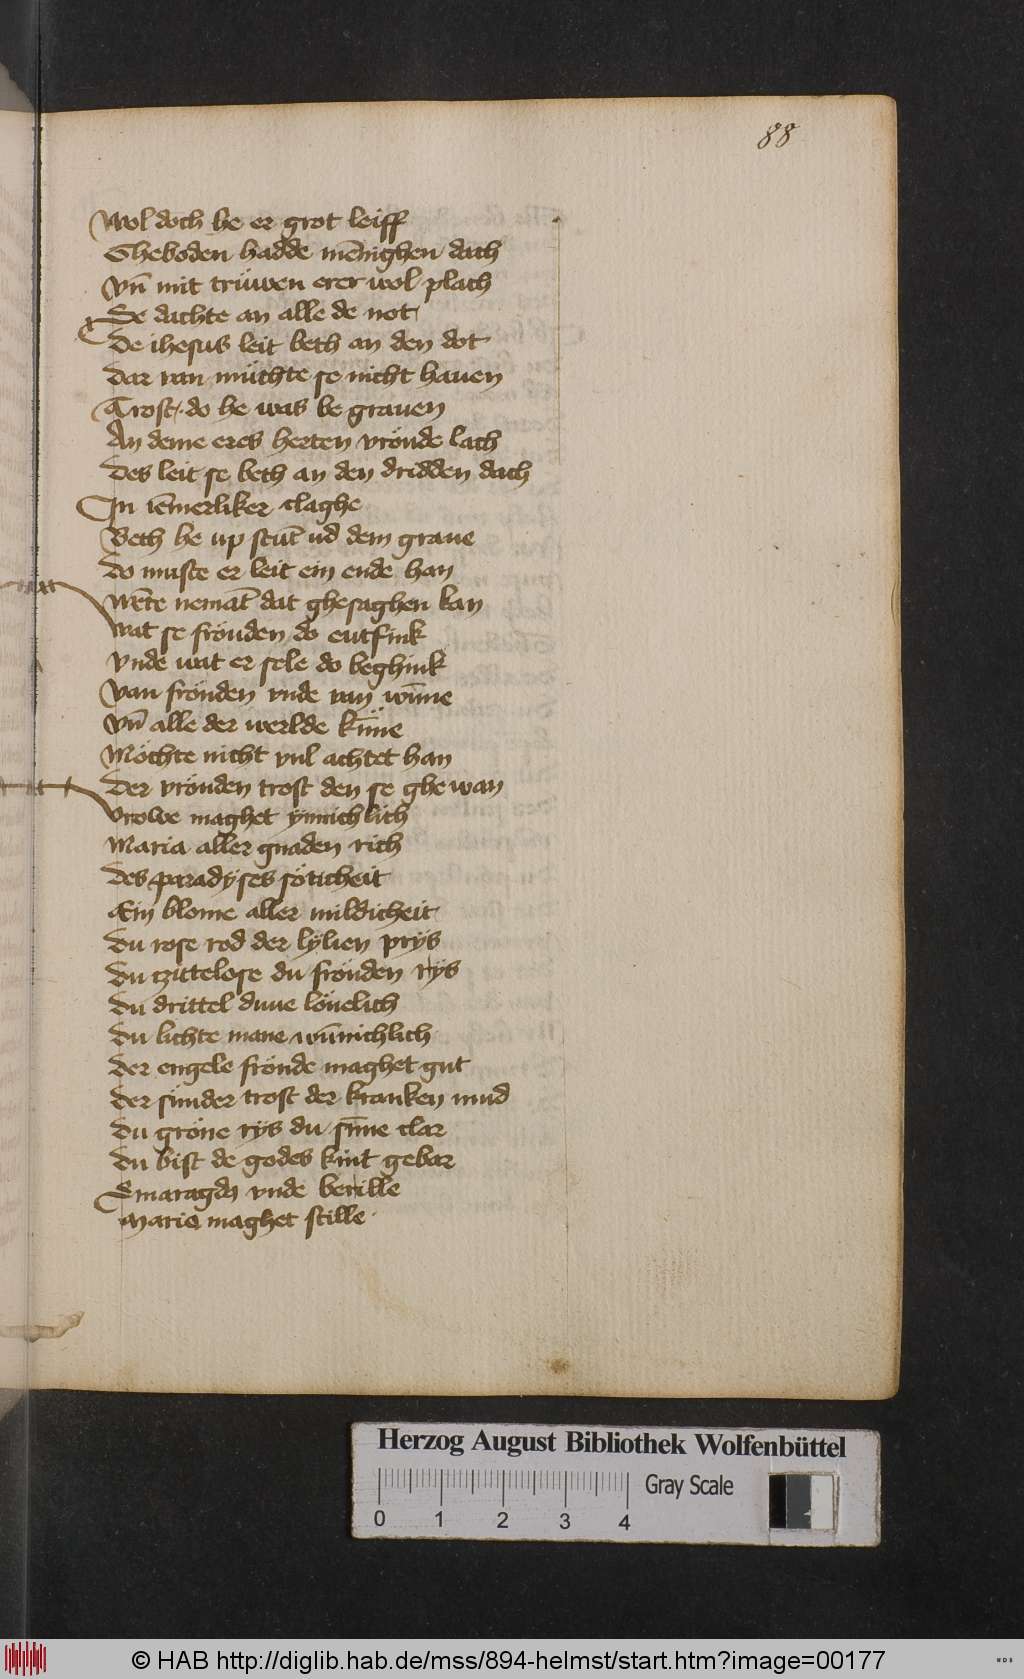 88
Wol doch he er grot leiff
Gheboden hadde mēnighen dach
Vn̄ mit trüwen erer wol plach
Se dachte an alle de not
De ihesus leit beth an den dot
Dar van müchte se nicht hauen
Trost do he was be grauen
An deme eres herten vröude lach
Des leit se beth an den dridden dach
In iēmerliker claghe
Beth he up stūt ud dem graue
Do muste er leit ein ende han
Wēte nemāt dat ghesaghen kan
Wat se fröuden do entfink
Vnde wat er sele do beghink
Van fröuden vnde van wūne
Vn̄ alle der werlde kūne
Möchte nicht vul achtet han
Der vröuden trost den se ghe wan
Vrowe maghet ynnichlich
Maria aller gnaden rich
Des paradyses söticheit
Ein blome aller mildicheit
Du rose rod der lylien prys
Du tzittelose du fröuden rys
Du drittel duue löuelich
Du lichte mane wūnichlich
Der engele fröude maghet gut
Der sünder trost der kranken mud
Du gröne rys du sūne clar
Du bist de godes kint gebar
Smaragdꝫ vnde berille
Maria maghet stille
Herzog August Bibliothek Wolfenbüttel
Gray Scale
0 1 2 3 4
© HAB http://diglib.hab.de/mss/894-helmst/start.htm?image=00177